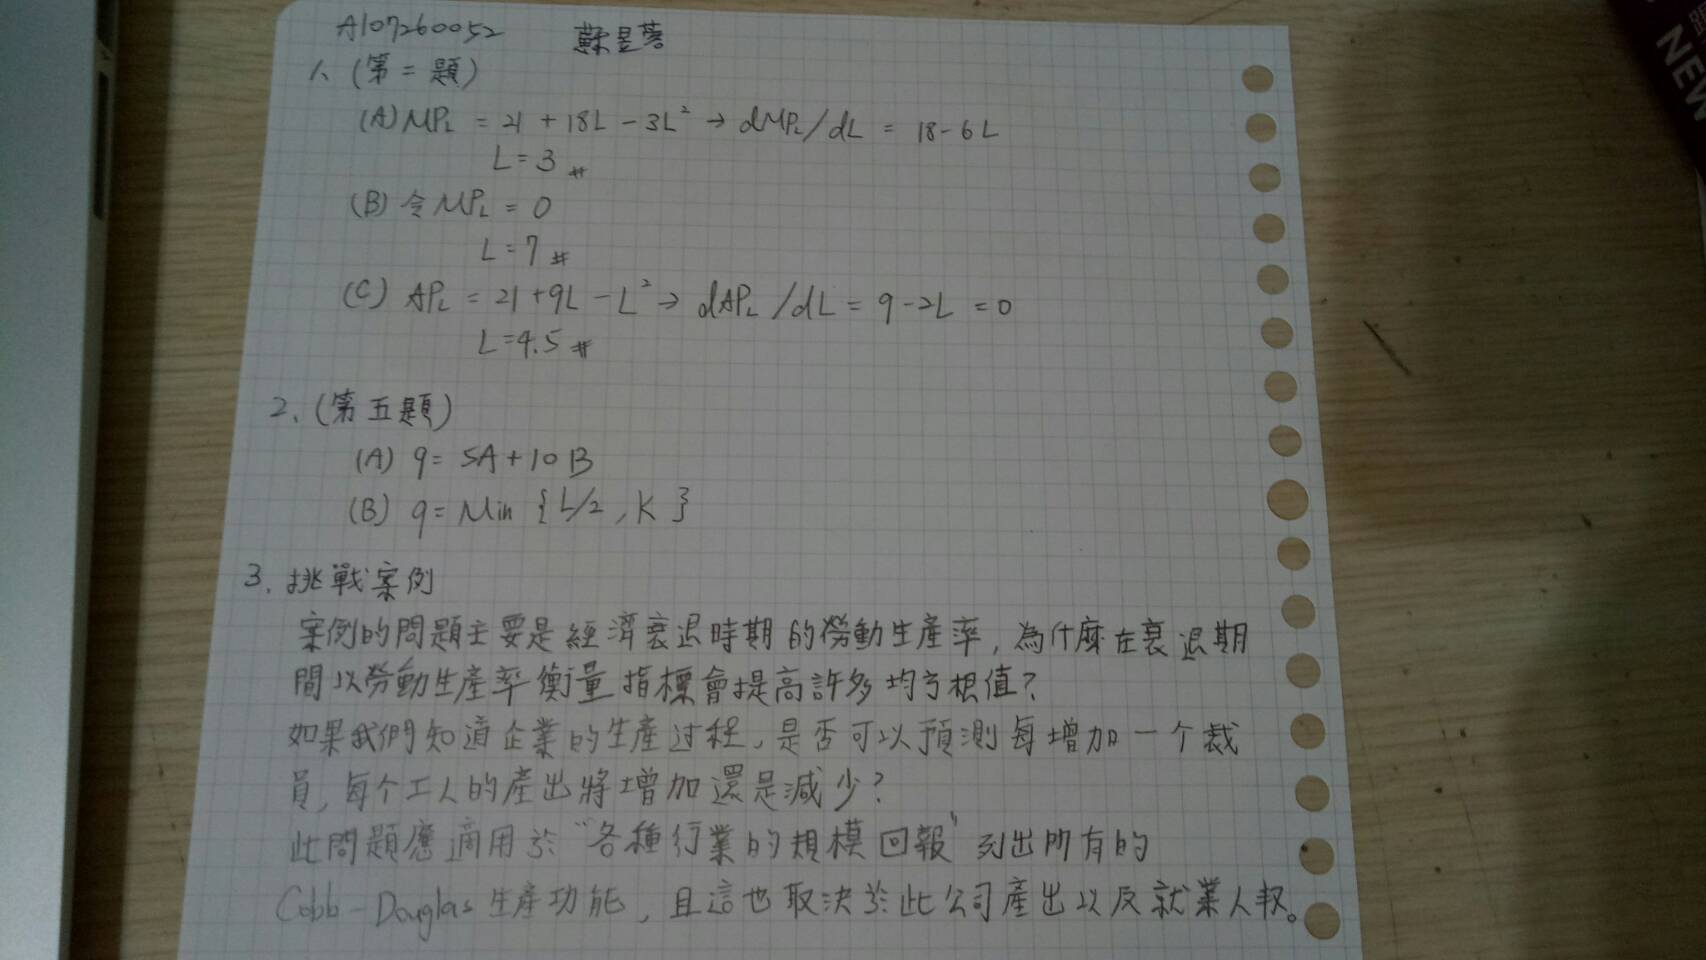 A107260052 蘇昱蓉
1、(第二題)
(A) MPL = 21 + 18L - 3L² → dMPL/dL = 18-6L
L=3 #
(B) 令 MPL = 0
L=7 #
(C) APL = 21+9L-L² → dAPL/dL = 9-2L = 0
L=4.5 #
2、(第五題)
(A) q= 5A+10B
(B) q= Min {L/2, K}
3、挑戰案例
案例的問題主要是經濟衰退時期的勞動生產率,為什麼在衰退期
間以勞動生產率衡量指標會提高許多均方根值?
如果我們知道企業的生產过程,是否可以預測每增加一个裁
員,每个工人的產出將增加還是減少?
此問題應適用於"各種行業的規模回報"列出所有的
Cobb-Douglas 生產功能,且這也取決於此公司產出以及就業人
NEW